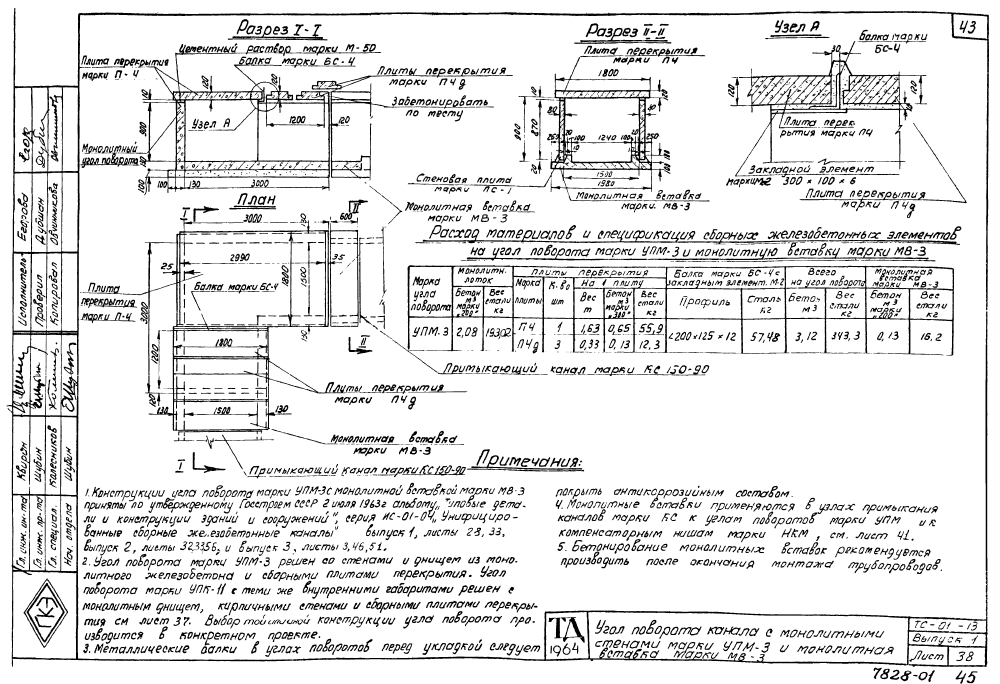 43
Разрез I-I
Цементный раствор марки М-50
Плита перекрытия марки П-4
Балка марки БС-4
Плиты перекрытия марки П4д
Забетонировать по месту
Узел А
Монолитный угол поворота
100
100
120
900
1200
120
100
100
130
3000
Монолитная вставка марки МВ-3
Разрез II-II
Плита перекрытия марки П4
1800
900
870
1240
100
100
250
1500
1580
20
Стеновая плита марки ПС-1
Монолитная вставка марки МВ-3
Узел А
30
Балка марки БС-4
120
120
Плита перекрытия марки П4
Закладной элемент марки М-2 300×100×6
Плита перекрытия марки П4д
План
3000
600
2990
35
25
1800
150
1500
150
3000
Плита перекрытия марки П-4
Балка марки БС-4
1800
1200
100
Плиты перекрытия марки П4д
130
1500
130
Монолитная вставка марки МВ-3
Примыкающий канал марки КС 150-90
Примыкающий канал марки КС 150-90
Расход материалов и спецификация сборных железобетонных элементов
на угол поворота марки УПМ-3 и монолитную вставку марки МВ-3
Марка угла поворота
Монолитн. лоток
Плиты перекрытия
Балка марки БС-4 с закладным элемент. М-2
Всего на угол поворота
Монолитная вставка МВ-3
Бетон м3 марки "200"
Вес стали кг
Марка плиты
К-во шт
На 1 плиту
Вес т
Бетон м3 марки "300"
Вес стали кг
Профиль
Сталь кг
Бетон м3
Вес стали кг
Бетон м3 марки "200"
Вес стали кг
УПМ-3 2,08 193,02 П4 1 1,63 0,65 55,9 ∟200×125×12 57,48 3,12 343,3 0,13 16,2
П4д 3 0,33 0,13 12,3
Примечания:
1. Конструкции угла поворота марки УПМ-3 с монолитной вставкой марки МВ-3
приняты по утвержденному Госстроем СССР 2 июля 1963г альбому „Типовые дета-
ли и конструкции зданий и сооружений", серия ИС-01-04, Унифициро-
ванные сборные железобетонные каналы" выпуск 1, листы 28, 33,
выпуск 2, листы 32,33,56, и выпуск 3, листы 3,46,51.
2. Угол поворота марки УПМ-3 решен со стенами и днищем из моно-
литного железобетона и сборными плитами перекрытия. Угол
поворота марки УПК-11 с теми же внутренними габаритами решен с
монолитным днищем, кирпичными стенами и сборными плитами перекры-
тия см лист 37. Выбор той или иной конструкции угла поворота про-
изводится в конкретном проекте.
3. Металлические балки в углах поворотов перед укладкой следует
покрыть антикоррозийным составом.
4. Монолитные вставки применяются в узлах примыкания
каналов марки КС к углам поворотов марки УПМ и к
компенсаторным нишам марки НКМ, см. лист 41.
5. Бетонирование монолитных вставок рекомендуется
производить после окончания монтажа трубопроводов.
Исполнитель Егорова
Проверил Дубшан
Копировал Овчинникова
Гл. инж. ин-та Кварон
Гл. инж. пр-та Шубин
Гл. специал. Колесников
Нач. отдела Шубин
ПКЭ
ТД
1964
Угол поворота канала с монолитными
стенами марки УПМ-3 и монолитная
вставка марки МВ-3
ТС-01-13
Выпуск 1
Лист 38
7828-01 45